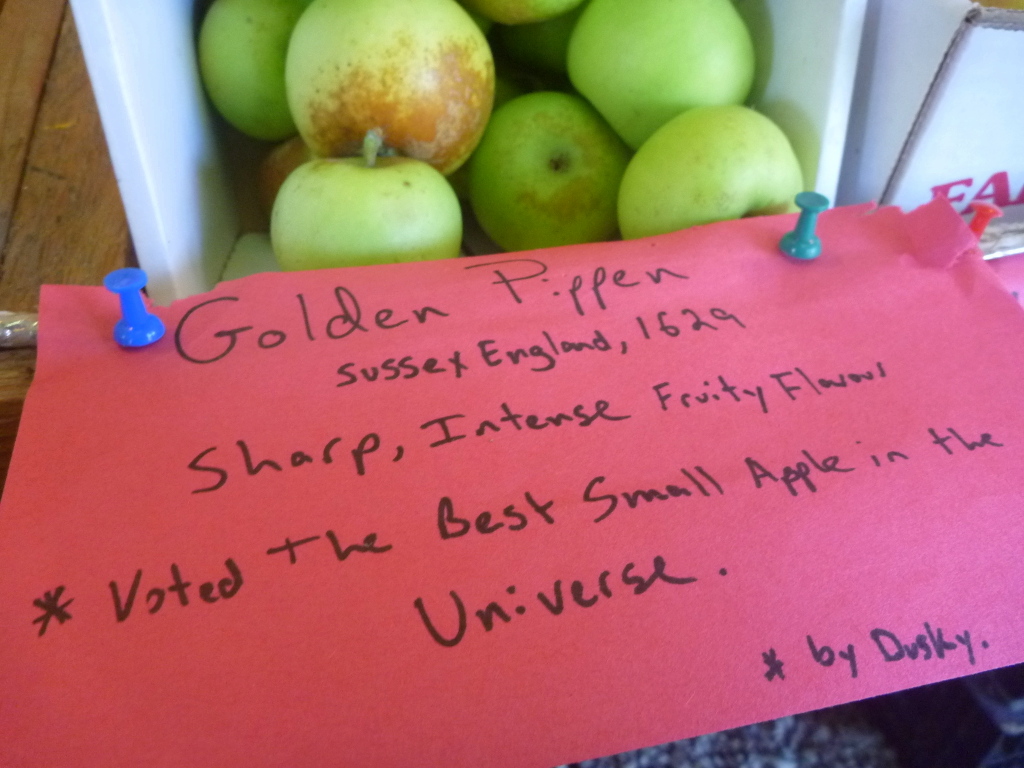 Golden Pippen
Sussex England, 1629
Sharp, Intense Fruity Flavour
* Voted The Best Small Apple in the
Universe.
* by Dusky.